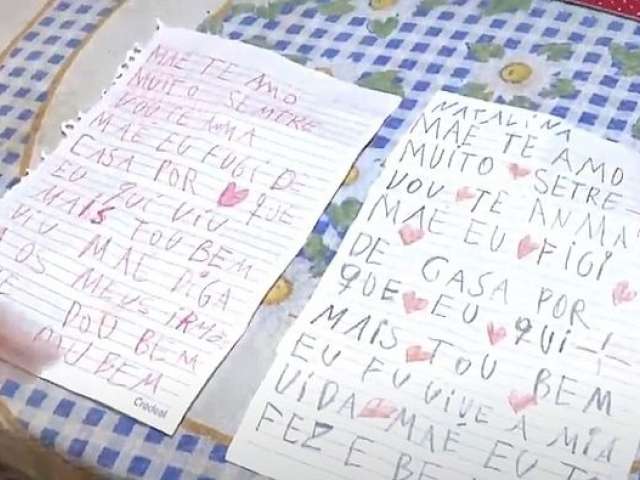 MAE TE AMO
MUITO SEMCRE
VOU TE AMA
MAE EU FUGI DE
CASA POR QUE
EU QUI VIU
MAIS TOU BEM
VIU MAE DIGA
OS MEUS IRMO
DOU BEM
DOU BEM
Credeal
NATALINA
MAE TE AMO
MUITO SETRE
VOU TE ANMA
MAE EU FIGI
DE CASA POR
QUE EU QUI
MAIS TOU BEM
EU FU VIVE A MIA
VIDA MAE EU
FEZ E BE